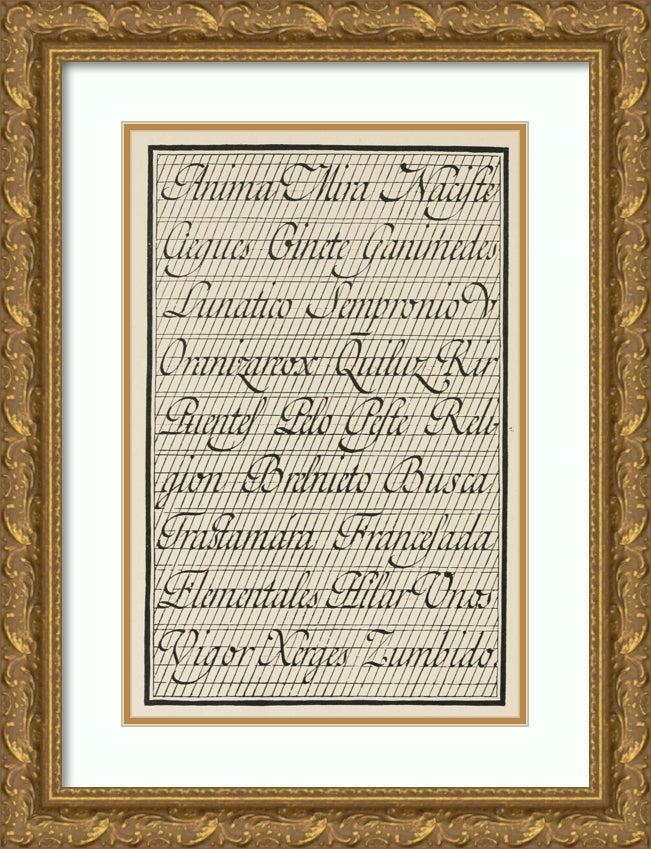 Anima Mira Naciste
Ciegues Ginete Ganimedes
Lunatico Sempronio V
Oranizareox Quiluz Kir
Puentes Pelo Peste Reli-
gion Brelnieto Busca
Trastamára Francesada
Elementales Hilar Unos
Vigor Xerges Zumbido.